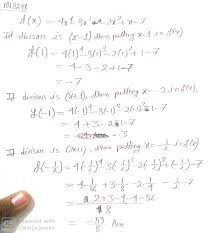 f(x) = 4x⁴-3x³-2x²+x-7
If divisor is (x-1) then putting x=1 in f(x)
f(1) = 4(1)⁴-3(1)³-2(1)²+1-7
= 4-3-2+1-7
= -7
If divisor is (x+1), then putting x=-1 in f(x)
f(-1) = 4(-1)⁴-3(-1)³-2(-1)²-1-7
= 4+3-2-1-7
= -3
If divisor is (2x+1), then putting x=-½ in f(x)
f(-½) = 4(-½)⁴-3(-½)³-2(-½)²-½-7
= 4·1/16+3·1/8-2·1/4-½-7
= 2+3-4-4-56/8
Ans
Scanned with
CamScanner